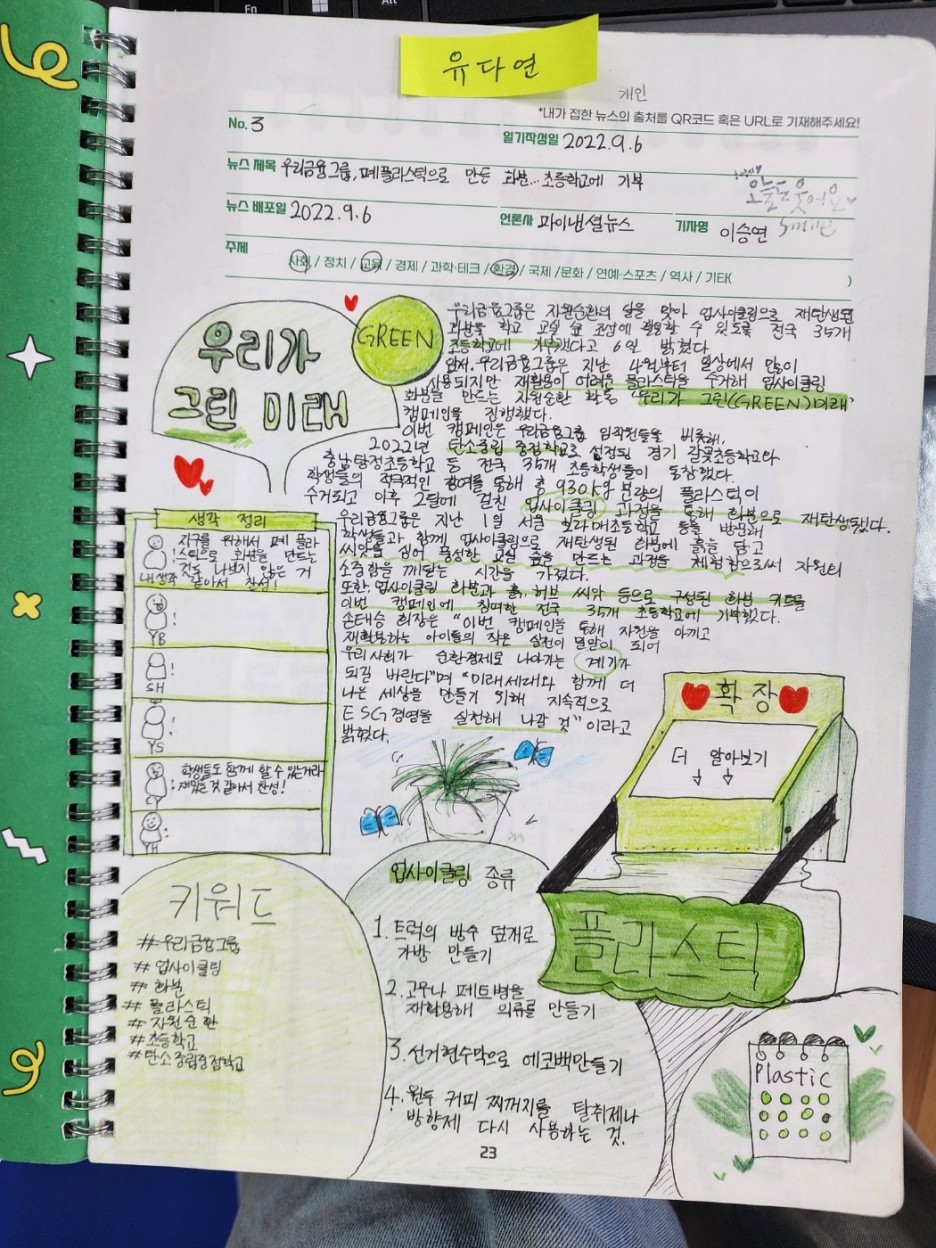 Alt
유다연
개인
*내가 접한 뉴스의 출처를 QR코드 혹은 URL로 기재해주세요!
No. 3
일기작성일 2022.9.6
뉴스 제목 우리금융그룹, 폐플라스틱으로 만든 화분...초등학교에 기부
오늘도 웃어요
smile
뉴스 배포일 2022.9.6
언론사 파이낸셜뉴스
기자명 이승연
주제
사회 / 정치 / 교육 / 경제 / 과학·테크 / 환경 / 국제 / 문화 / 연예·스포츠 / 역사 / 기타( )
우리가
그린 미래
GREEN
우리금융그룹은 자원순환의 날을 맞아 업사이클링으로 재탄생된
화분을 학교 교실 숲 조성에 활용할 수 있도록 전국 35개
초등학교에 기부했다고 6일 밝혔다
앞서, 우리금융그룹은 지난 4월부터 일상에서 많이
사용되지만 재활용이 어려운 플라스틱을 수거해 업사이클링
화분을 만드는 자원순환 활동 '우리가 그린(GREEN)미래'
캠페인을 진행했다.
이번 캠페인은 우리금융그룹 임직원들을 비롯해,
2022년 탄소중립 중점학교로 선정된 경기 갈곶초등학교와
충남탕정초등학교 등 전국 35개 초등학생들이 동참했다.
학생들의 적극적인 참여를 통해 총 930kg 분량의 플라스틱이
수거되고 이후 2달에 걸친 업사이클링 과정을 통해 화분으로 재탄생됐다.
우리금융그룹은 지난 1일 서울 보라매초등학교 등을 방문해
학생들과 함께 업사이클링으로 재탄생된 화분에 흙을 담고
씨앗을 심어 풍성한 교실 숲을 만드는 과정을 체험함으로써 자원의
소중함을 깨닫는 시간을 가졌다.
또한, 업사이클링 화분과 흙, 허브 씨앗 등으로 구성된 화분 키트를
이번 캠페인에 참여한 전국 35개 초등학교에 기부했다.
손태승 회장은 "이번 캠페인을 통해 자원을 아끼고
재활용하는 아이들의 작은 실천이 밑알이 되어
우리 사회가 순환경제로 나아가는 계기가
되길 바란다"며 "미래세대와 함께 더
나은 세상을 만들기 위해 지속적으로
ESG경영을 실천해 나갈 것"이라고
밝혔다.
생각 정리
지구를 위해서 폐 플라
스틱으로 화분을 만드는
것도 나쁘지 않은 거
같아서 찬성!
내생각
YB
SH
YS
학생들도 함께 할 수 있는거라
재밌는 것 같아서 찬성!
CY
YH
확장
더 알아보기
키워드
#우리금융그룹
#업사이클링
#화분
#플라스틱
#자원순환
#초등학교
#탄소중립중점학교
업사이클링 종류
1. 트럭의 방수 덮개로
가방 만들기
2. 고무나 페트병을
재활용해 의류를 만들기
3. 선거현수막으로 에코백만들기
4. 원두 커피 찌꺼지를 탈취제나
방향제 다시 사용하는 것.
플라스틱
Plastic
23